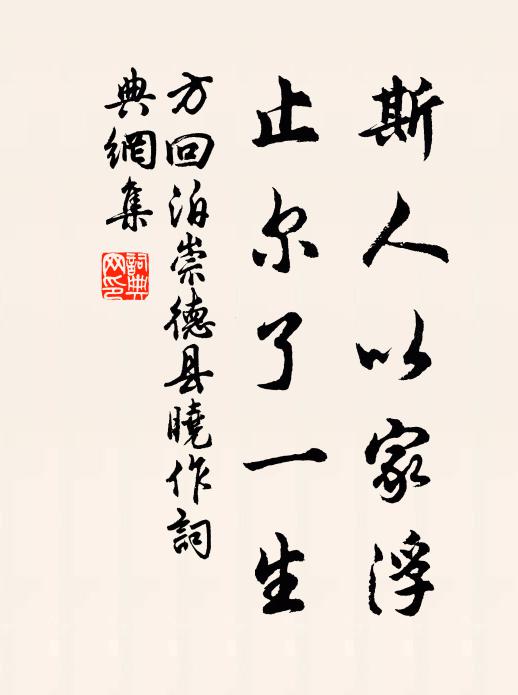 斯人以家浮
止尔了一生
方回泊崇德县曉作詞
典網集
詞典网印